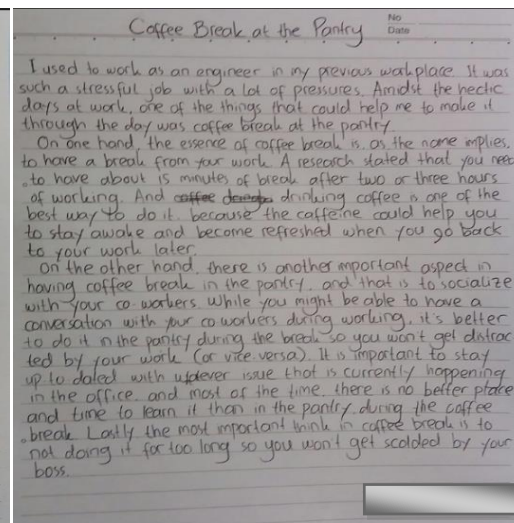 Coffee Break at the Pantry
No
Date
I used to work as an engineer in my previous workplace. It was
such a stressful job with a lot of pressures. Amidst the hectic
days at work, one of the things that could help me to make it
through the day was coffee break at the pantry.
On one hand, the essence of coffee break is, as the name implies,
to have a break from your work. A research stated that you need
to have about 15 minutes of break after two or three hours
of working. And drinking coffee is one of the
best way to do it. because the caffeine could help you
to stay awake and become refreshed when you go back
to your work later.
On the other hand, there is another important aspect in
having coffee break in the pantry, and that is to socialize
with your co-workers. While you might be able to have a
conversation with your co workers during working, it's better
to do it in the pantry during the break so you won't get distrac
ted by your work (or vice versa). It is important to stay
up to dated with issue that is currently happening
in the office, and most of the time, there is no better place
and time to learn it than in the pantry, during the coffee
break. Lastly the most important think in coffee break is to
not doing it for too long so you won't get scolded by your
boss.